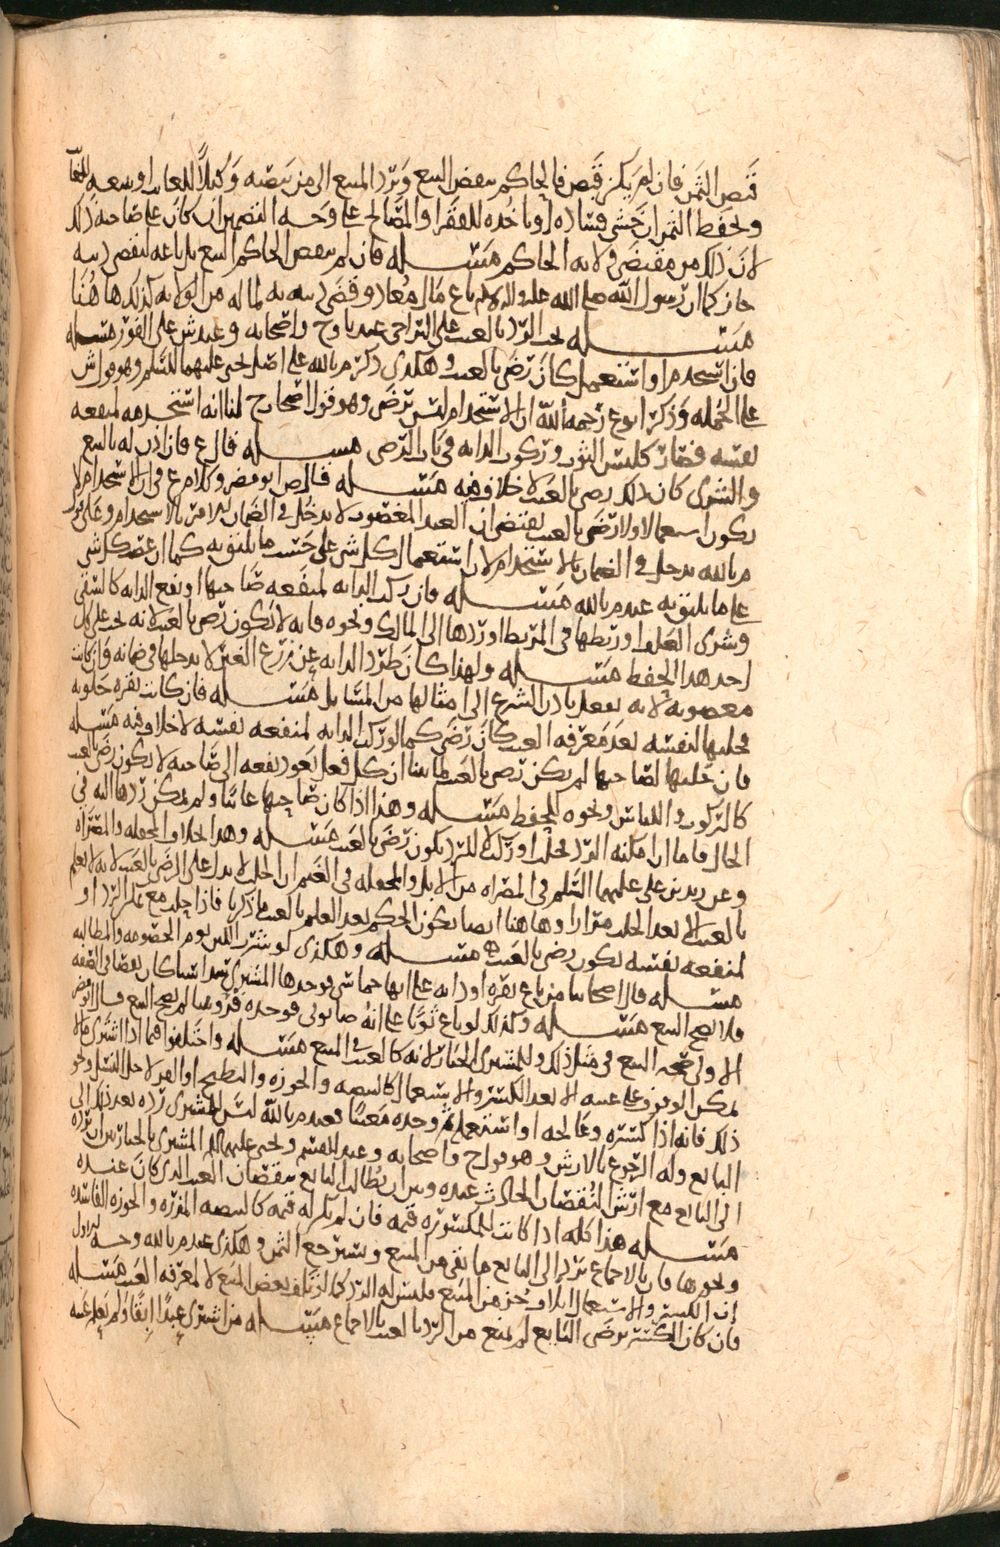 قبض الثمن فان لم يكن قبض فالحاكم ينقض البيع ويرد المبيع الى من ينصبه وكيلا للغايب او يبيعه
ويحفظ الثمن ان خشي فساده او ياخذه للفقرا والمصالح على وجه التضمين ان كان على صاحبه ذلك
لان ذلك من مقتضى ولايه الحاكم مسله فان لم ينقض الحاكم البيع بل باعه لنقض دينه
جاز كما ان رسول الله صلى الله عليه واله باع مال معاذ وقضى دينه به لما له من الولايه كذلك هاهنا
مسله يجب الرد بالعيب على التراخي عند وح واصحابه وعند ش على الفور مسله
فان استخدم او استعمل كان رضى بالعيب وهكذى ذكر م بالله على اصل يحيى عليهما السلم وهو قول ش
على الجمله وذكر ابو ع رحمه الله ان الاستخدام ليس برضى وهو قول اصحاب ح لنا انه استخدمه لمنفعه
نفسه فصار كلبس الثوب وركوب الدابه في باب الرضى مسله قال ع فان اذن له بالبيع
والشرى كان ذلك رضى بالعيب لا خلاف فيه مسله قال ص ابو مضر وكلام ع في ان الاستخدام لا
يكون استعمالا ولا رضى بالعيب يقتضي ان العبد المغصوب لا يدخل في الضمان بالامر بالاستخدام وعلى قول
م بالله يدخل في الضمان بالاستخدام لان استعمال كل شي على حسب ما يليق به كما ان غصب كل شي
على ما يليق به عند م بالله مسله فان ركب الدابه لمنفعه صاحبها او نفع الدابه كالسقي
وشرى العلف او ربطها في المربط او ردها الى المالك ونحوه فانه لا يكون رضى بالعيب لانه يجب على كل
احد هذا الحفظ مسله ولهذا كان طرد الدابه عن زرع الغير لا يدخلها في ضمانه وان كانت
مغصوبه لانه يفعل باذن الشرع الى امثالها من المسايل مسله فان كانت بقره حلوبه
فحلبها لنفسه بعد معرفه العيب كان رضى كما لو ركب الدابه لمنفعه نفسه لا خلاف فيه مسله
فان حلبها لصاحبها لم يكن رضى بالعيب لما بينا ان كل فعل يعود نفعه الى صاحبه لا يكون رضى بالعيب
كالركوب واللباس ونحوه للحفظ مسله وهذا اذا كان صاحبها غايبا ولم يمكن ردها اليه في
الحال فاما ان امكنه الرد فحلب او ركب لا للرد يكون رضى بالعيب مسله وهذا الخلاف المحفله والمصراه
وعن زيد بن علي عليهما السلم في المصراه من الابل والمحفله في الغنم ان الحلب لا يدل على الرضى بالعيب لانه لا يعلم
بالعيب الا بعد الحلب مرارا وهاهنا ايضا يكون الحكم بعد العلم بالعيب ما ذكرنا فاذا حلب مع تمكن الرد او
لمنفعه نفسه يكون رضى بالعيب مسله وهكذى لو شرب اللبن يوم الخصومه والمطالبه
مسله قال اصحابنا من باع بقره او دابه على انها حماشي فوجدها المشتري كان نقصا في الصفه
ولا يصح البيع مسله وكذلك لو باع ثوبا على انه صابوني فوجده لم يصح البيع قال ابو مضر
الاولى صحه البيع في مثل ذلك وللمشتري الخيار لانه كالعيب في البيع مسله واختلفوا فيما اذا اشترى ما لا
يمكن الوقوف على عيبه الا بعد الكسر والاستعمال كالبيضه والجوزه والبطيخ او ونحو
ذلك فانه اذا كسره وعالجه او استعمله ثم وجده معيبا فعند م بالله ليس للمشتري رده بعد ذلك الى
البايع وله الرجوع بالارش وهو قول ح واصحابه وعند القسم ويحيى عليهما السلم المشتري بالخيار بين ان يرده
الى البايع مع ارش النقصان الحادث عنده وبين ان يطالب البايع بنقصان العيب الذي كان عنده
مسله هذا كله اذا كانت للمكسوره قيمه فان لم يكن له قيمه كالبيضه المذره والجوزه الفاسده
ونحوها فان بالاجماع يرد الى البايع ما بقي من المبيع ويسترجع الثمن وهكذى عند م بالله وجه
ان الكسر والاستعمال اتلاف جزء من المبيع فليس له الرد كما لو تلف بعض المبيع لا لمعرفه العيب مسله
فان كان الكسر برضى البايع لم يمنع من الرد بالعيب بالاجماع مسله من اشترى عبدا ابقا ولم يعلم عيبه